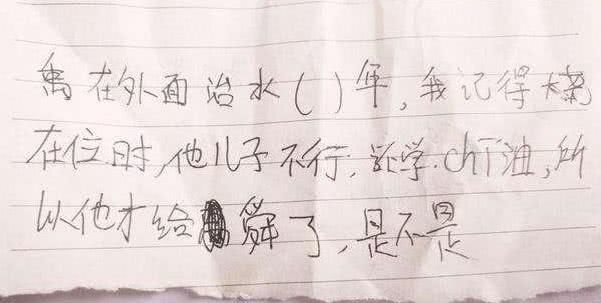 禹在外面治水( )年,我记得大尧
在位时,他儿子不行,还学chī油,所
以他才给舜了,是不是